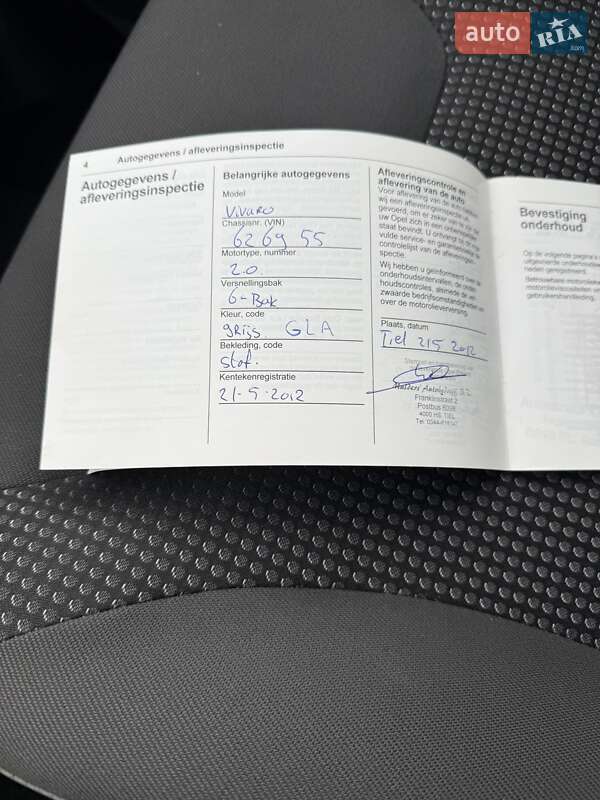 auto RIA.com
4 Autogegevens / afleveringsinspectie
Autogegevens /
afleveringsinspectie
Belangrijke autogegevens
Model
Vivaro
Chassisnr. (VIN)
626955
Motortype, nummer
2.0
Versnellingsbak
6-Bak
Kleur, code
grijs GLA
Bekleding, code
stof.
Kentekenregistratie
21-5-2012
Afleveringscontrole en
aflevering van de auto
Voor aflevering van de auto hebben
wij een afleveringsinspectie uit-
gevoerd, om er zeker van te zijn
uw Opel zich in een onberispelijke
staat bevindt. U ontvangt de
vulde service- en garantieboekje
controlelijst van de afleveringsin-
spectie.
Wij hebben u geïnformeerd over de
onderhoudsintervallen, de onder-
houdscontroles, alsmede de
zwaarde bedrijfsomstandigheden en
over de motorolieverversing.
Plaats, datum
Tiel 215 2012
Franklinstraat 2
Postbus 6098
4000 HS TIEL
Bevestiging
onderhoud
Op de volgende pagina's
uitgevoerde onderhoudsw
heden geregistreerd.
Betrouwbare motorolie
motorolievoorschriften
gebruikershandleiding.